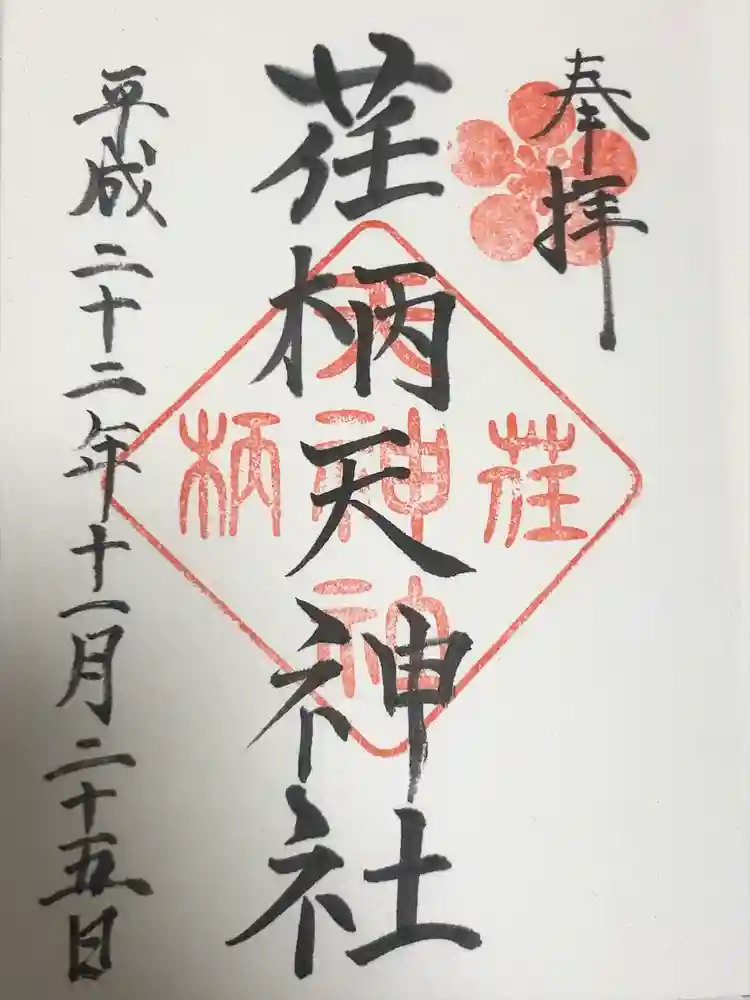 奉拝
荏柄天神社
平成二十二年十一月二十五日
荏
天
神
社
柄